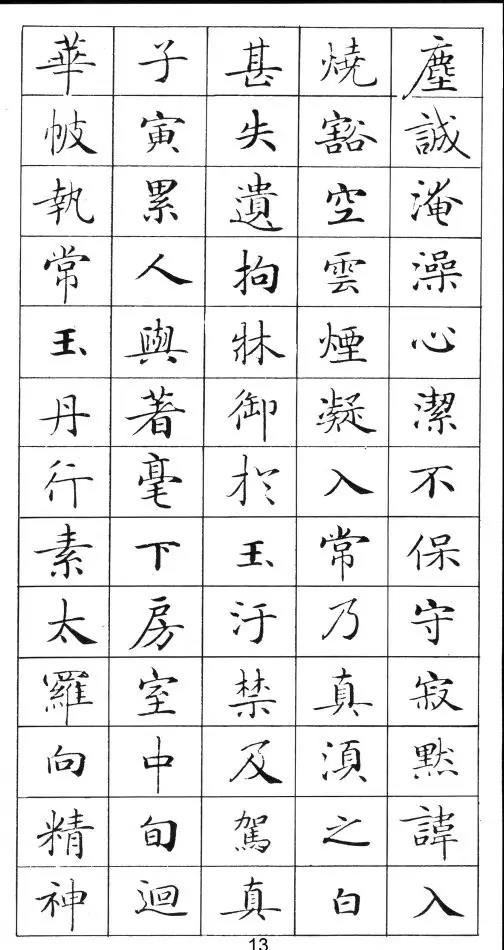 塵誠淹澡心潔不保守寂默諱入
燒豁空雲煙凝入常乃真湏之白
甚失遺拘牀御於玉汙禁及駕真
子寅累人與著毫下房室中旬迴
華帔執常玉丹行素太羅向精神
13